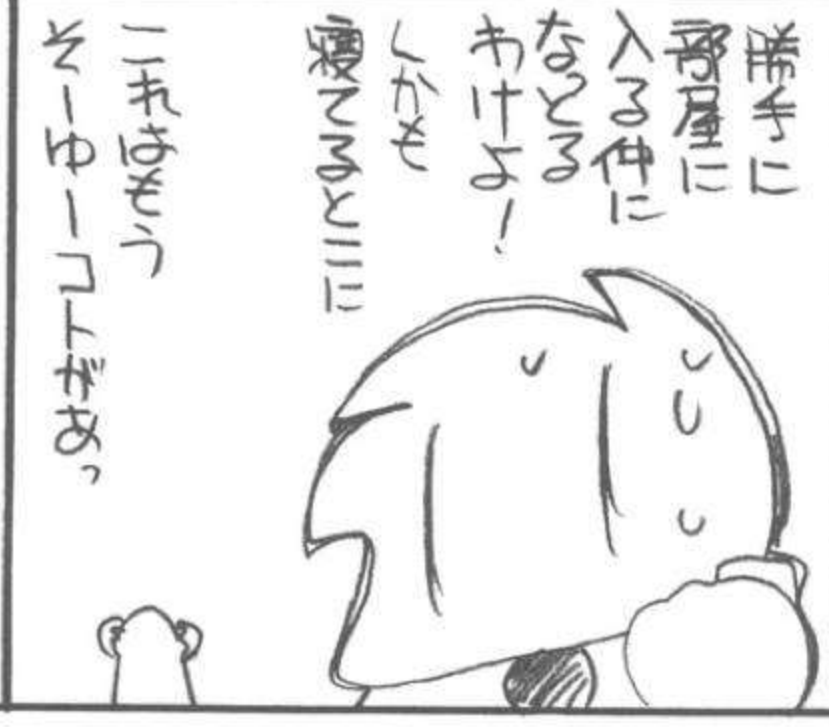 勝手に
部屋に
入る仲に
なっとる
わけよ！
しかも
寝てるとこに
これはもう
そーゆーコトがあっ